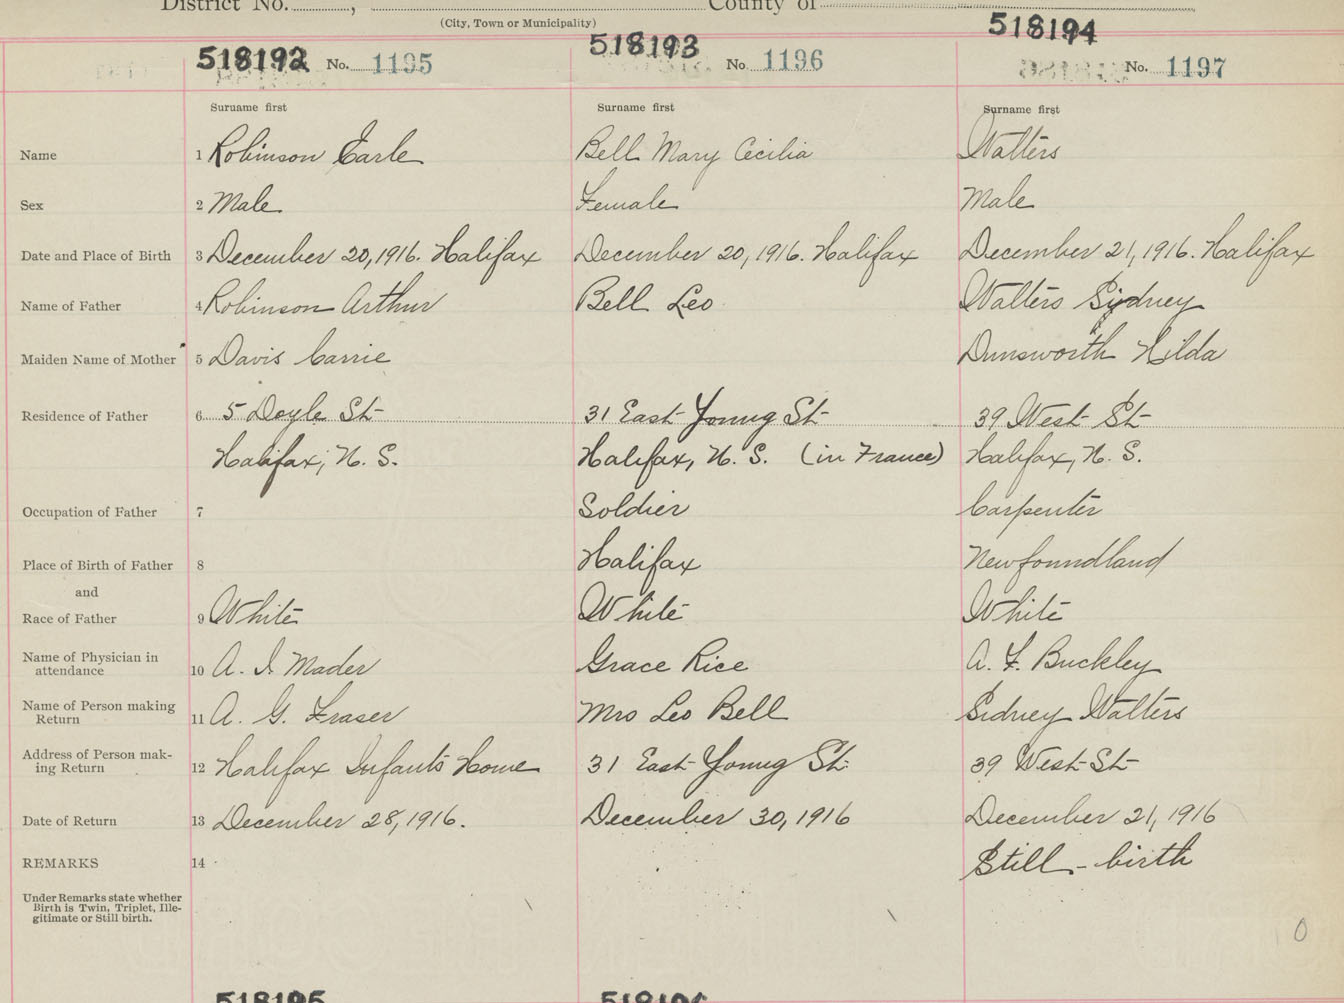 District No. , County of
(City, Town or Municipality)
518192 No. 1195 518193 No. 1196 518194 No. 1197
Surname first Surname first Surname first
Name 1 Robinson Earle Bell Mary Cecilia Walters
Sex 2 Male Female Male
Date and Place of Birth 3 December 20, 1916. Halifax December 20, 1916. Halifax December 21, 1916. Halifax
Name of Father 4 Robinson Arthur Bell Leo Walters Sidney
Maiden Name of Mother 5 Davis Carrie Dunsworth Hilda
Residence of Father 6 5 Doyle St 31 East Young St 39 West St
Halifax, N. S. Halifax, N. S. (in France) Halifax, N. S.
Occupation of Father 7 Soldier Carpenter
Place of Birth of Father 8 Halifax Newfoundland
and
Race of Father 9 White White White
Name of Physician in
attendance 10 A. I. Mader Grace Rice A. F. Buckley
Name of Person making
Return 11 A. G. Fraser Mrs Leo Bell Sidney Walters
Address of Person mak-
ing Return 12 Halifax Infants Home 31 East Young St. 39 West St
Date of Return 13 December 28, 1916. December 30, 1916 December 21, 1916
REMARKS 14 Still-birth
Under Remarks state whether
Birth is Twin, Triplet, Ille-
gitimate or Still birth.
0
518195